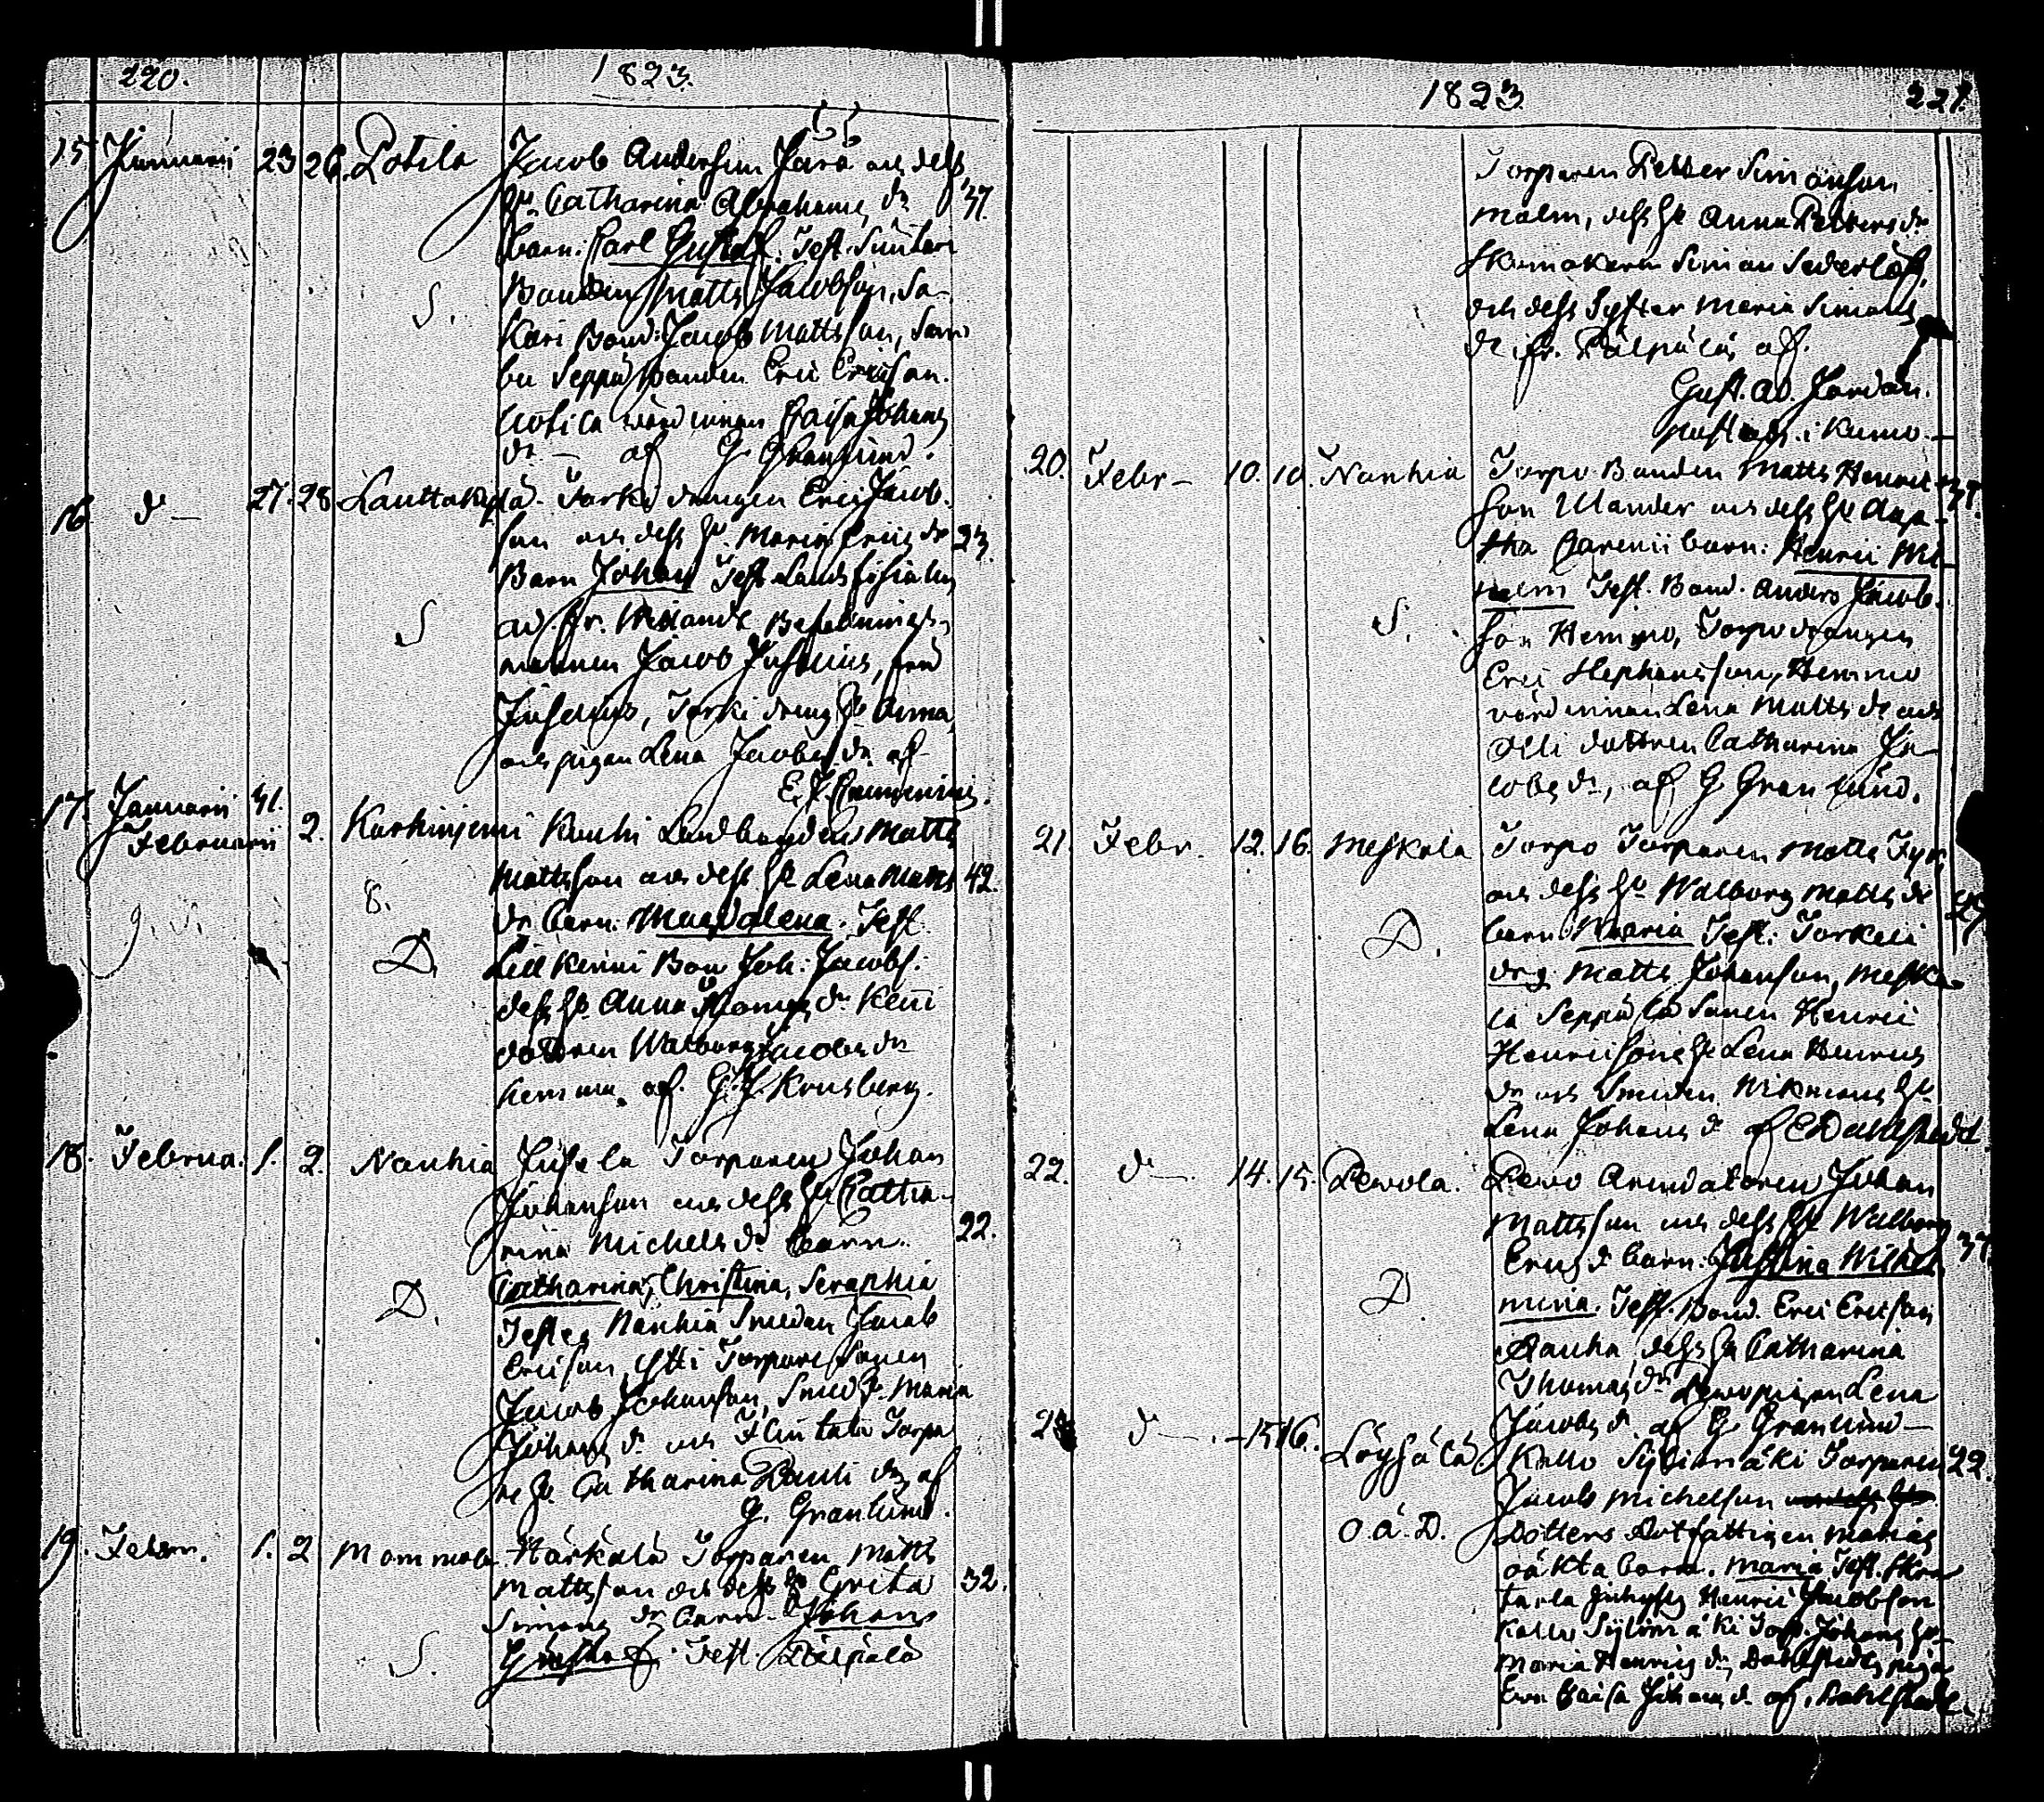 220. 1823.
15 Januarii 23 26. Potila Jacob Andersson Jara och dess
hu. Catharina Abrahams dr 37.
barn: Carl Gustaf. Test.
S. Bonden Matts Jacobson, Sa-
kari Bond: Jacob Mattsson,
Seppä Bonden Eric Ericson.
Caisa Johans
dr — af G. Granlund.
16 d — 27. 28 Lauttakylä. Torki drengen Eric Jacob-
son och dess hu. Maria Erics dr 23.
Barn Johan Test.
S Befallnings-
mannen Jacob Juselius, fru
Juselius, Torki dreng hu Anna
och pigan Lena Jacobs dr af
E. J.
17. Januarii 31.
Februarii 2. Karhiniemi Kouhi Landbonden Matts
Mattsson och dess hu Lena Matts 42.
8. dr barn: Magdalena. Test.
g. S. D. Lill Kenni Bon Joh: Jacobs:
dess hu. Anna Thomas dr Keni
dottren Walborg Jacobs dr
hemma. af. G. J. Krusberg.
18. Februa. 1. 2. Nanhia Jusela Torparen Johan
Johanson och dess hu Catha-
rina Michels dr Barn. 22.
Catharina, Christina, Seraphia
D. Testes Nanhia Smeden Jacob
Ericson, Torpare Sonen
Jacob Johanson, Smed hu Maria
Johans dr och Torpa-
re hu Catharina Pauli dr, af
G. Granlund.
19. Febru. 1. 2 Mommola Härkälä Torparen Matts
Mattsson och dess hu Greta 32.
Simons dr barn. Johan
S. Gustaf. Test. Pälpälä
1823. 221.
Torparen Petter Simonson
Malm, dess hu Anna Petters dr
Skomakaren Simon Sederlöf,
och dess Syster Maria Simons
dr ifr. Pälpälä, af.
Gust. Ad. Jordan.
i Kumo. —
20. Febr — 10. 10. Nanhia Torpo Bonden Matts Henric- 37.
son Ulander och dess hu Aga-
tha Carenii barn: Henric Wil-
helm Test. Bond. Anders Jacob-
S. son Hemmo, Torpo drengen
Eric Stephansson, Hemmo
värdinnan Lena Matts dr och
Olli dottren Catharina Ja-
cobs dr, af G Granlund.
21. Febr. 12. 16. Meskala Torpo Torparen Matts Fyr,
och dess hu Walborg Matts dr
barn Maria Test: Torkeli
D. drg. Matts Johanson, Meska-
la Seppälä Sonen Henric
Henricsons hu Lena Henrics
dr och Smeden Wikmans hu
Lena Johans dr af E Dahlstedt
22. d —. 14. 15. Pewola. Pewo Arendatoren Johan
Mattsson och dess hu Walborg
Erics dr barn: Justina Wilhel- 37
D mina. Test. Bond. Eric Ericson
Rauha, dess hu Catharina
Thomas dr Pewo pigan Lena
Jacobs dr af G Granlund —
d —. 15 16. Löysälä Kallo Sÿlimäki Torparen 22.
Jacob Michelson
O.ä.D. Dotters Rotfattigen Marias
oäkta barn. Maria Test.
Henric Jacobson
Kallo Sÿlimäki Torp. Johans hu
Maria Henrics dr, Dahlstedts piga
Caisa Johans dr af, Dahlstedt.